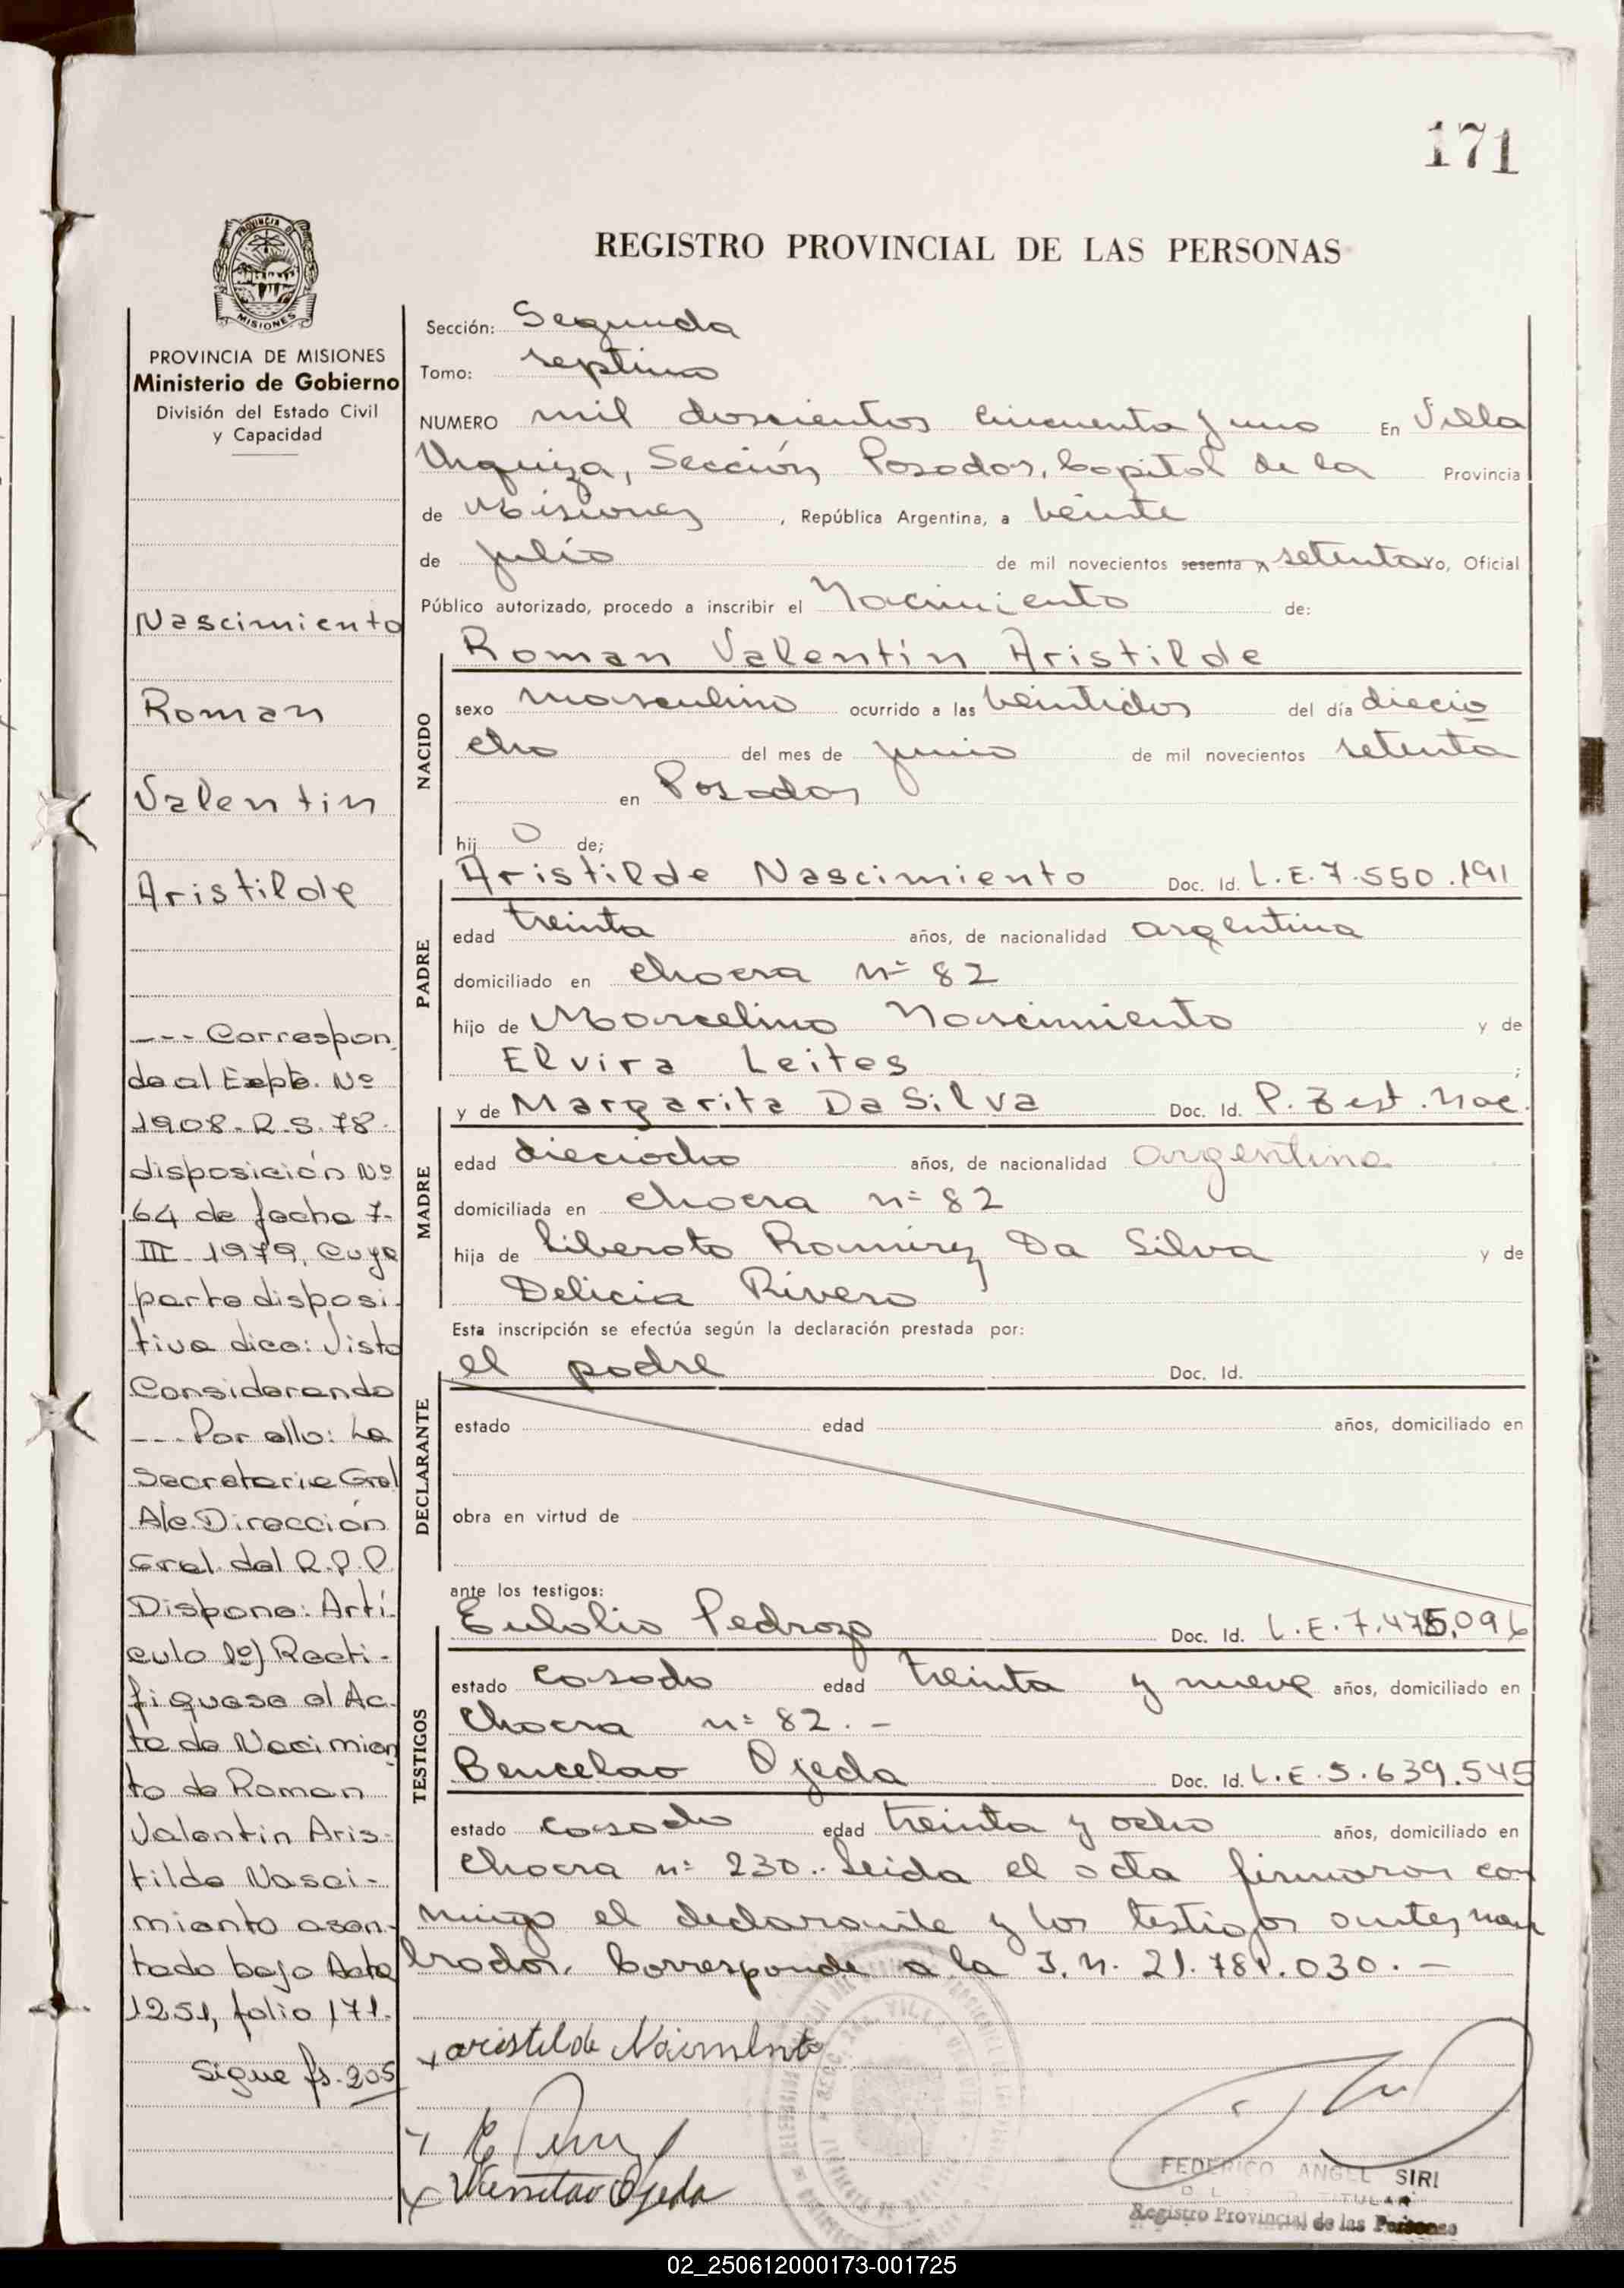 171
PROVINCIA DE
MISIONES
REGISTRO PROVINCIAL DE LAS PERSONAS
PROVINCIA DE MISIONES
Ministerio de Gobierno
División del Estado Civil
y Capacidad
Nascimiento
Roman
Valentin
Aristilde
--- Correspon
de al Expte. Nº
1908-R.S.78-
disposición Nº
64 de fecha 7-
III-1979, cuya
parte disposi-
tiva dice: Visto
Considerando
--- Por ello: La
Secretaria Gral
A/c Dirección
Gral. del R.P.P.
Dispone: Artí-
culo 1º) Recti-
fiquese el Ac-
ta de Nacimien
to de Roman
Valentin Aris-
tilde Nasci-
miento asen-
tado bajo Acta
1251, folio 171.
Sigue fs. 205
Sección: Segunda
Tomo: septimo
NUMERO mil doscientos cincuenta y uno En Villa
Urquiza, Sección Posadas, Capital de la Provincia
de Misiones, República Argentina, a veinte
de julio de mil novecientos sesenta y setenta yo, Oficial
Público autorizado, procedo a inscribir el Nacimiento de:
NACIDO
Roman Valentín Aristilde
sexo masculino ocurrido a las veintidos del día diecio
cho del mes de junio de mil novecientos setenta
en Posadas
hijo de;
PADRE
Aristilde Nascimiento Doc. Id. L.E. 7.550.191
edad treinta años, de nacionalidad argentina
domiciliado en chacra nº 82
hijo de Marcelino Nascimiento y de
Elvira Leites ;
MADRE
y de Margarita Da Silva Doc. Id. P. Nac.
edad dieciocho años, de nacionalidad argentina
domiciliada en chacra nº 82
hija de Liberato Ramirez Da Silva y de
Delicia Rivero
Esta inscripción se efectúa según la declaración prestada por:
DECLARANTE
el padre Doc. Id.
estado edad años, domiciliado en
obra en virtud de
ante los testigos:
TESTIGOS
Eulalio Pedrozo Doc. Id. L.E. 7.475.096
estado casado edad treinta y nueve años, domiciliado en
chacra nº 82.-
Bencelao Ojeda Doc. Id. L.E. 5.639.545
estado casado edad treinta y ocho años, domiciliado en
chacra nº 230.- Leida el acta firmaron con
migo el declarante y los testigos antes nom
brados. Corresponde a la I.N. 21.781.030.-
x aristilde
Ojeda
FEDERICO ANGEL SIRI
TITULAR
Registro Provincial de las Personas
02_250612000173-001725